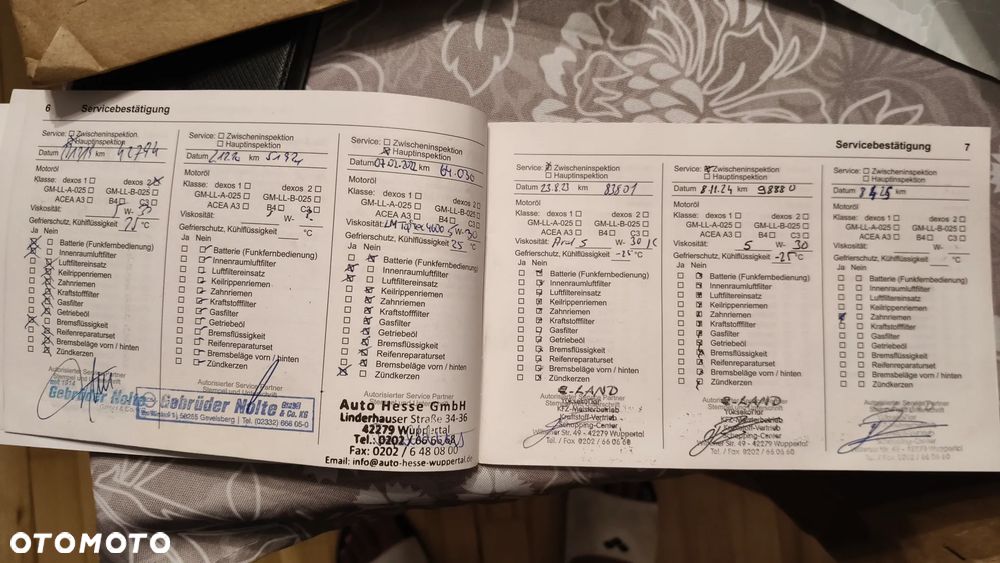 6 Servicebestätigung
Service: Zwischeninspektion
Hauptinspektion
Datum km 42794
Motoröl
Klasse: dexos 1 dexos 2
GM-LL-A-025 GM-LL-B-025
ACEA A3 B4 C3
Viskosität: W- 30
Gefrierschutz, Kühlflüssigkeit °C
Ja Nein
Batterie (Funkfernbedienung)
Innenraumluftfilter
Luftfiltereinsatz
Keilrippenriemen
Zahnriemen
Kraftstofffilter
Gasfilter
Getriebeöl
Bremsflüssigkeit
Reifenreparaturset
Bremsbeläge vorn / hinten
Zündkerzen
Autorisierter Service Partner
Stempel und Unterschrift
seit 1914
Gebrüder Nolte
GmbH & Co. KG
Service: Zwischeninspektion
Hauptinspektion
Datum km
Motoröl
Klasse: dexos 1 dexos 2
GM-LL-A-025 GM-LL-B-025
ACEA A3 B4 C3
Viskosität: W-
Gefrierschutz, Kühlflüssigkeit °C
Ja Nein
Batterie (Funkfernbedienung)
Innenraumluftfilter
Luftfiltereinsatz
Keilrippenriemen
Zahnriemen
Kraftstofffilter
Gasfilter
Getriebeöl
Bremsflüssigkeit
Reifenreparaturset
Bremsbeläge vorn / hinten
Zündkerzen
Autorisierter Service Partner
Stempel und Unterschrift
Gebrüder Nolte GmbH & Co. KG
58285 Gevelsberg | Tel. (02332) 666 05-0
Service: Zwischeninspektion
Hauptinspektion
Datum 07.02.2022 km 64.030
Motoröl
Klasse: dexos 1 dexos 2
GM-LL-A-025 GM-LL-B-025
ACEA A3 B4 C3
Viskosität: LM Top Tec 4600 5 W-30
Gefrierschutz, Kühlflüssigkeit 25 °C
Ja Nein
Batterie (Funkfernbedienung)
Innenraumluftfilter
Luftfiltereinsatz
Keilrippenriemen
Zahnriemen
Kraftstofffilter
Gasfilter
Getriebeöl
Bremsflüssigkeit
Reifenreparaturset
Bremsbeläge vorn / hinten
Zündkerzen
Autorisierter Service Partner
Auto Hesse GmbH
Linderhauser Straße 34-36
42279 Wuppertal
Tel.: 0202
Fax: 0202 / 6 48 08 00
Email: info@auto-hesse-wuppertal.de
Servicebestätigung 7
Service: Zwischeninspektion
Hauptinspektion
Datum 23.8.23 km 83501
Motoröl
Klasse: dexos 1 dexos 2
GM-LL-A-025 GM-LL-B-025
ACEA A3 B4 C3
Viskosität: Aral 5 W- 30
Gefrierschutz, Kühlflüssigkeit -25 °C
Ja Nein
Batterie (Funkfernbedienung)
Innenraumluftfilter
Luftfiltereinsatz
Keilrippenriemen
Zahnriemen
Kraftstofffilter
Gasfilter
Getriebeöl
Bremsflüssigkeit
Reifenreparaturset
Bremsbeläge vorn / hinten
Zündkerzen
Autorisierter Service Partner
KFZ-Meisterbetrieb
Kraftstoff-Vertrieb
Shopping-Center
Str. 49 - 42279 Wuppertal
Tel. / Fax 0202 / 66 06 60
Service: Zwischeninspektion
Hauptinspektion
Datum 8.11.24 km 98880
Motoröl
Klasse: dexos 1 dexos 2
GM-LL-A-025 GM-LL-B-025
ACEA A3 B4 C3
Viskosität: 5 W- 30
Gefrierschutz, Kühlflüssigkeit -25 °C
Ja Nein
Batterie (Funkfernbedienung)
Innenraumluftfilter
Luftfiltereinsatz
Keilrippenriemen
Zahnriemen
Kraftstofffilter
Gasfilter
Getriebeöl
Bremsflüssigkeit
Reifenreparaturset
Bremsbeläge vorn / hinten
Zündkerzen
Autorisierter Service Partner
KFZ-Meisterbetrieb
Kraftstoff-Vertrieb
Shopping-Center
Str. 49 - 42279 Wuppertal
Tel. / Fax 0202 / 66 06 60
Service: Zwischeninspektion
Hauptinspektion
Datum km
Motoröl
Klasse: dexos 1 dexos 2
GM-LL-A-025 GM-LL-B-025
ACEA A3 B4 C3
Viskosität: W-
Gefrierschutz, Kühlflüssigkeit °C
Ja Nein
Batterie (Funkfernbedienung)
Innenraumluftfilter
Luftfiltereinsatz
Keilrippenriemen
Zahnriemen
Kraftstofffilter
Gasfilter
Getriebeöl
Bremsflüssigkeit
Reifenreparaturset
Bremsbeläge vorn / hinten
Zündkerzen
Autorisierter Service Partner
Str. 49 - 42279 Wuppertal
Tel. / Fax 0202 / 66 06 60
OTOMOTO